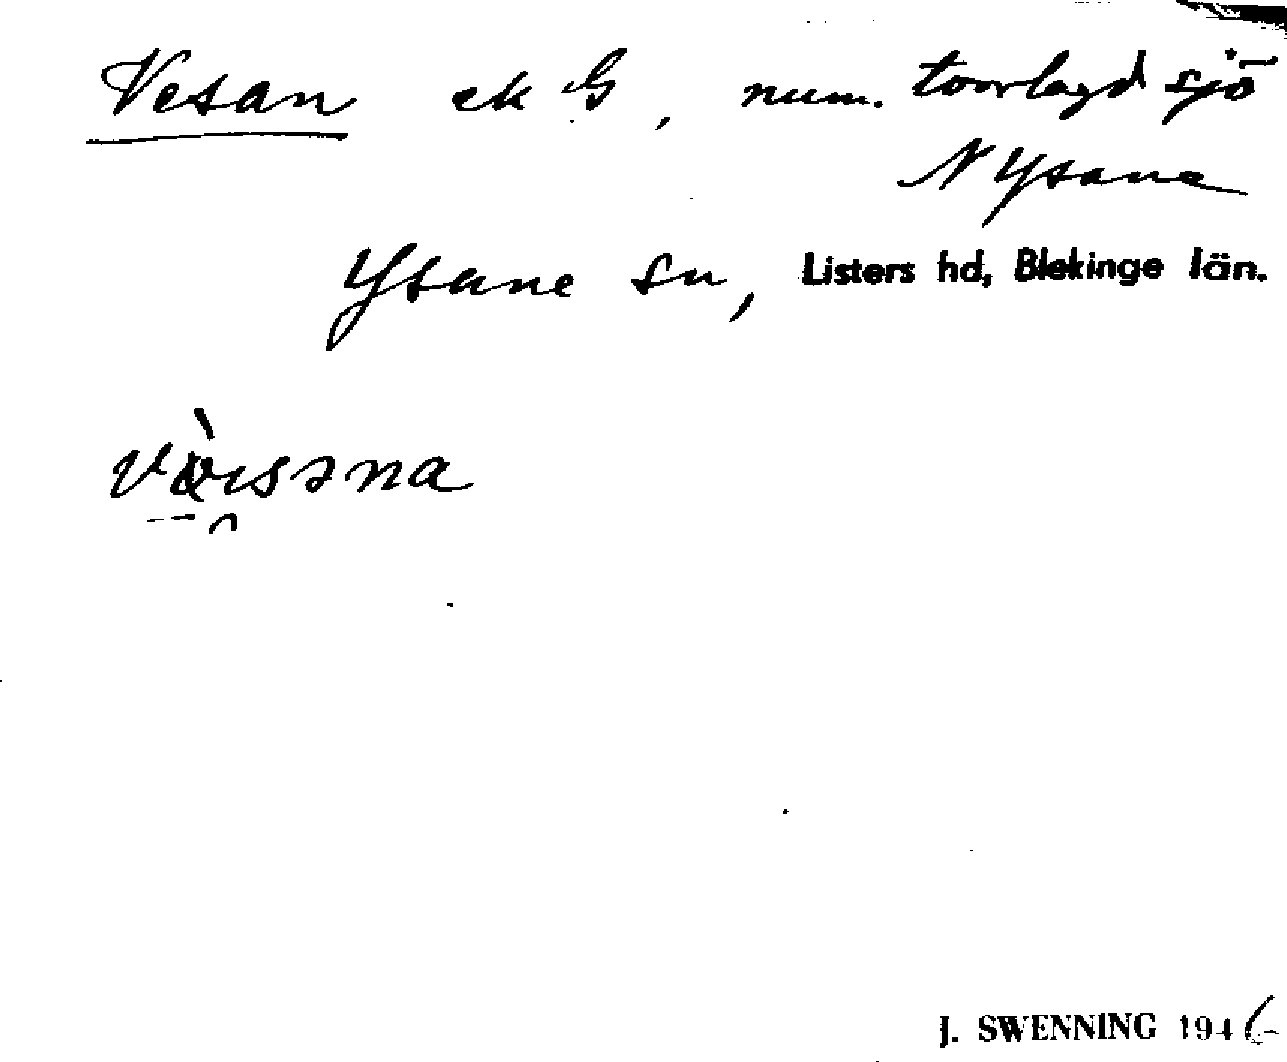 Vesan ek G, num. torrlagd sjö
N Ysane
Ysane sn, Listers hd, Blekinge län.
J. SWENNING 1946